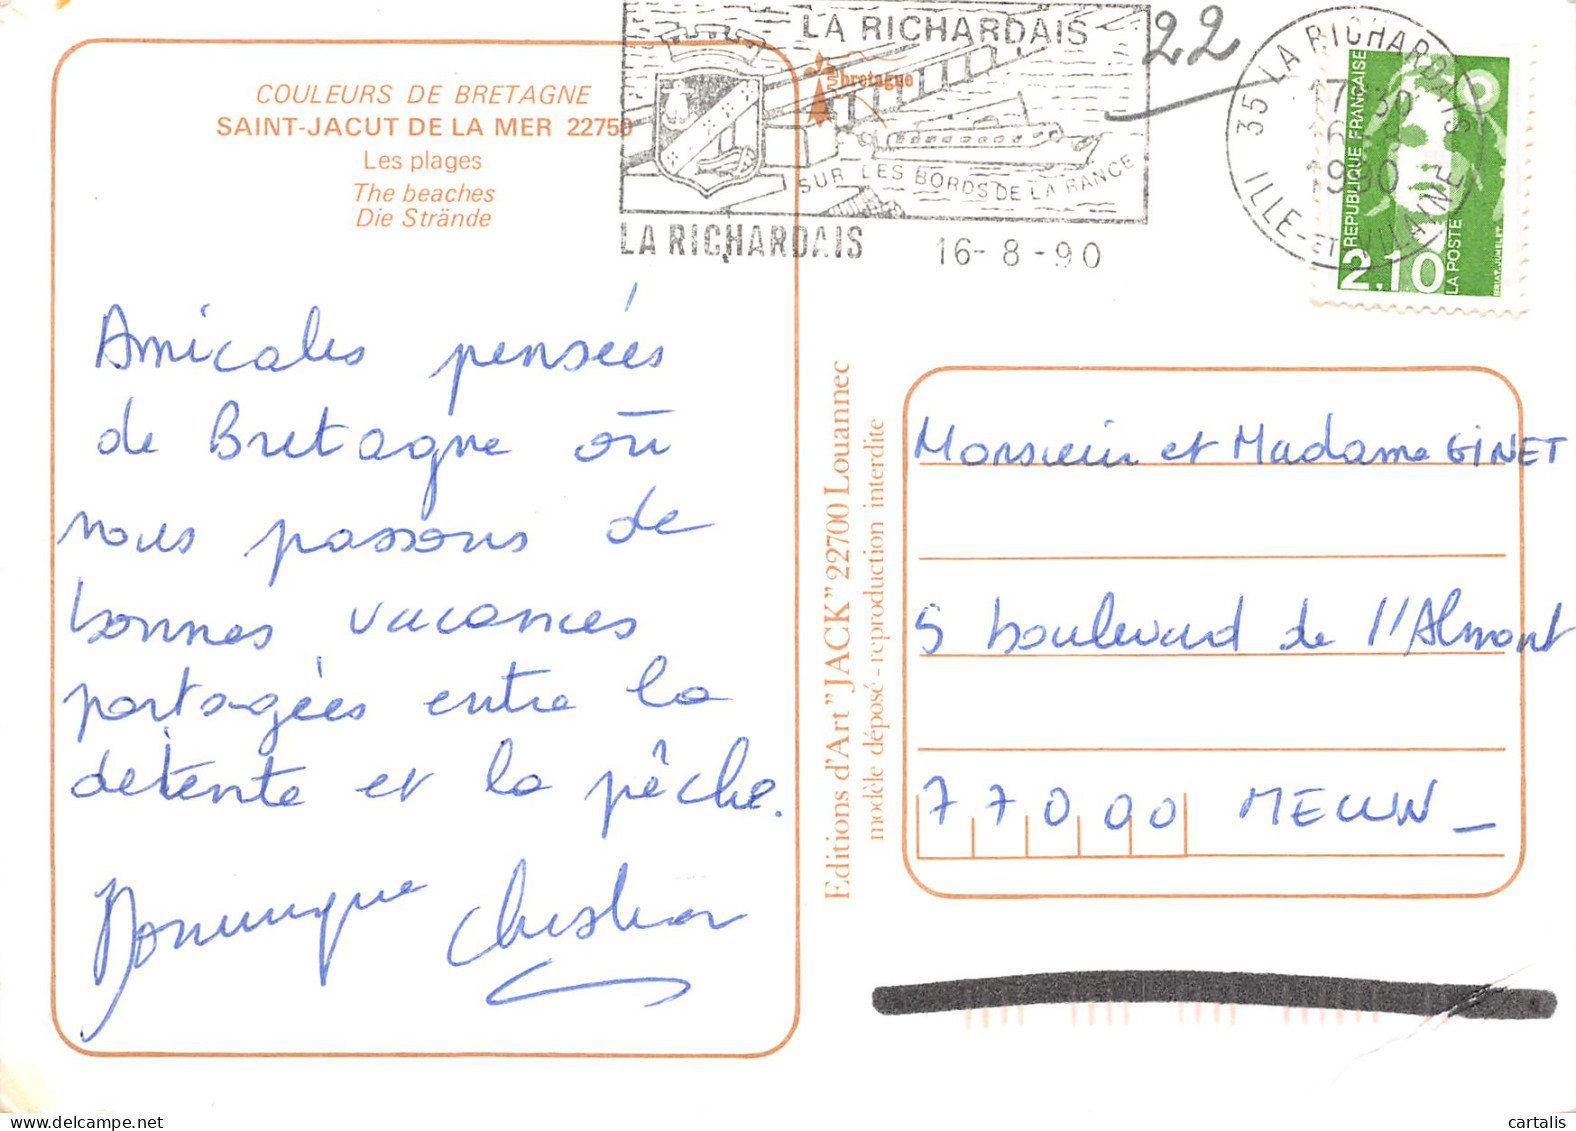 COULEURS DE BRETAGNE
SAINT-JACUT DE LA MER 22750
Les plages
The beaches
Die Strände
LA RICHARDAIS
bretagne
SUR LES BORDS DE LA RANCE
LA RICHARDAIS 16-8-90
22
35 LA RICHARDAIS
17 30
1990
ILLE-ET-VILAINE
REPUBLIQUE FRANÇAISE
2,10
LA POSTE
BRIAT.JUMELET
Amicales pensées
de Bretagne où
nous passons de
bonnes vacances
partagées entre la
détente et la pêche.
Dominique Christian
Editions d'Art "JACK" 22700 Louannec
modèle déposé - reproduction interdite
Monsieur et Madame GINET
5 boulevard de l'Almont
77000 MELUN_
cartalis